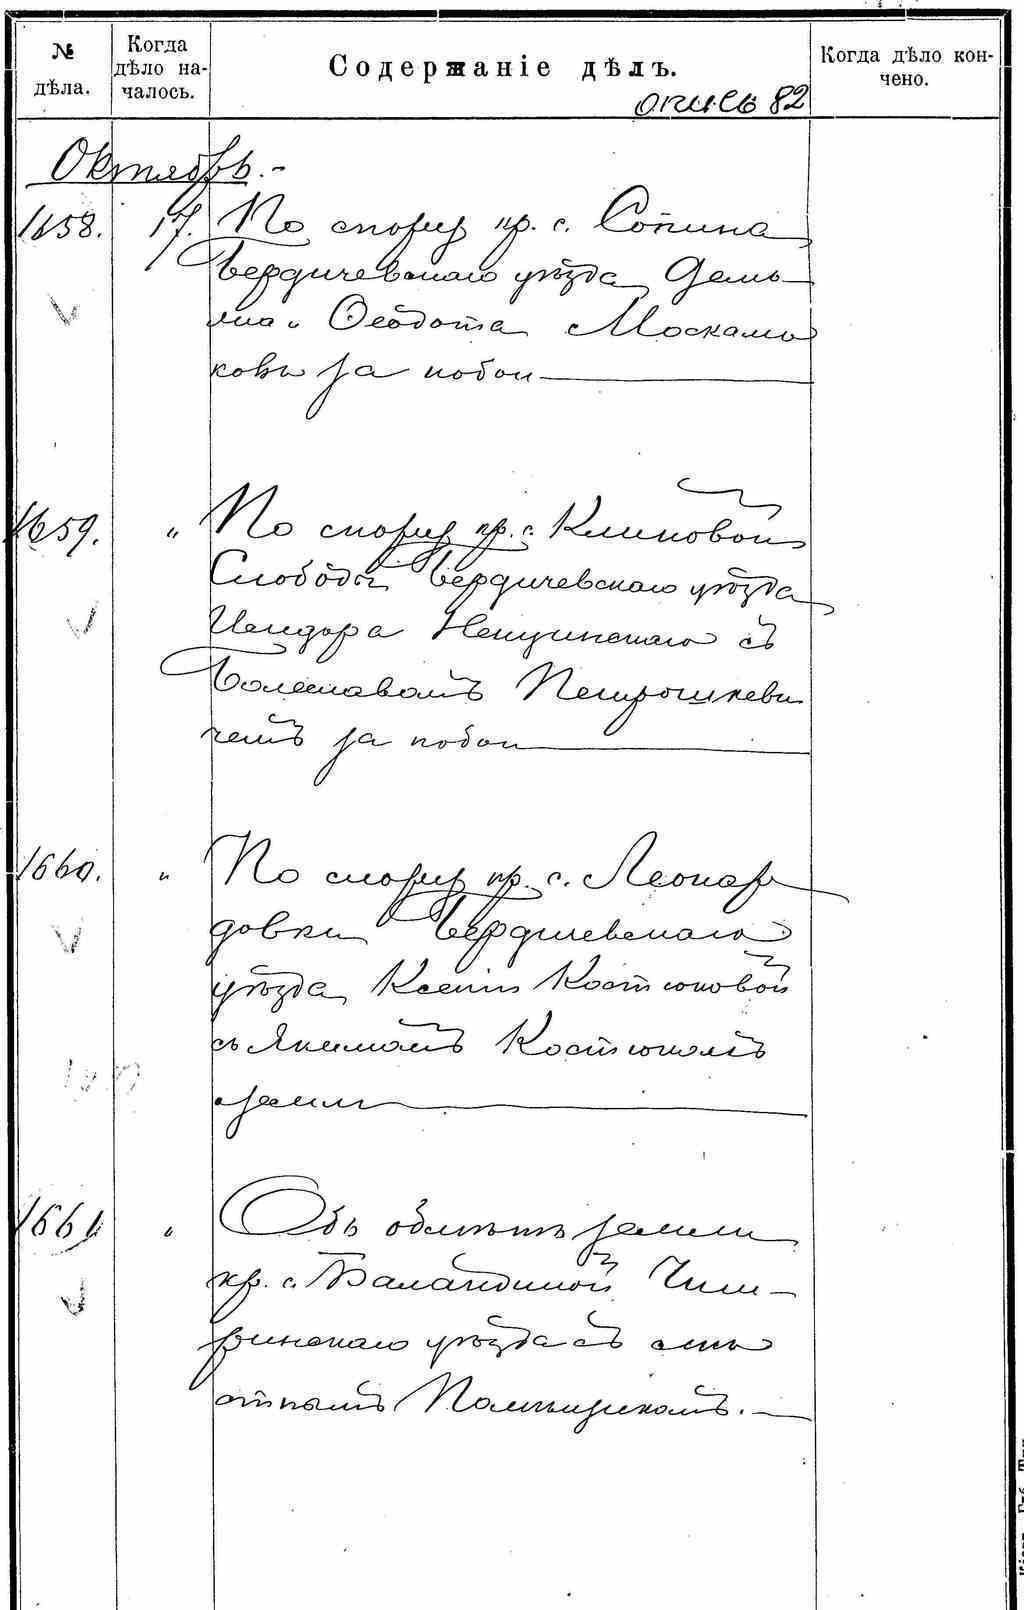 № дѣла.
Когда дѣло на-
чалось.
Содержаніе дѣлъ.
Когда дѣло кон-
чено.
опись 82
Октябрь.-
1658. 17. По спору кр. с. Сопина
Бердичевскаго уѣзда Демь-
яна и Ѳеодота Москаль
ковы за побои
1659. " По спору кр. с. Клиновой
Слободы Бердичевскаго уѣзда
Исидора Нещинскаго съ
Болеславомъ Петрошкеви
чемъ за побои
1660. " По спору кр. с. Леонар
довки Бердичевскаго
уѣзда Ксеніи Костюковой
съ Якимомъ Костюкомъ
о земли
1661 " Объ обмѣнѣ земли
кр. с. Баландиной Чиги-
ринскаго уѣзда съ
мѣстнымъ Помѣщикомъ.-